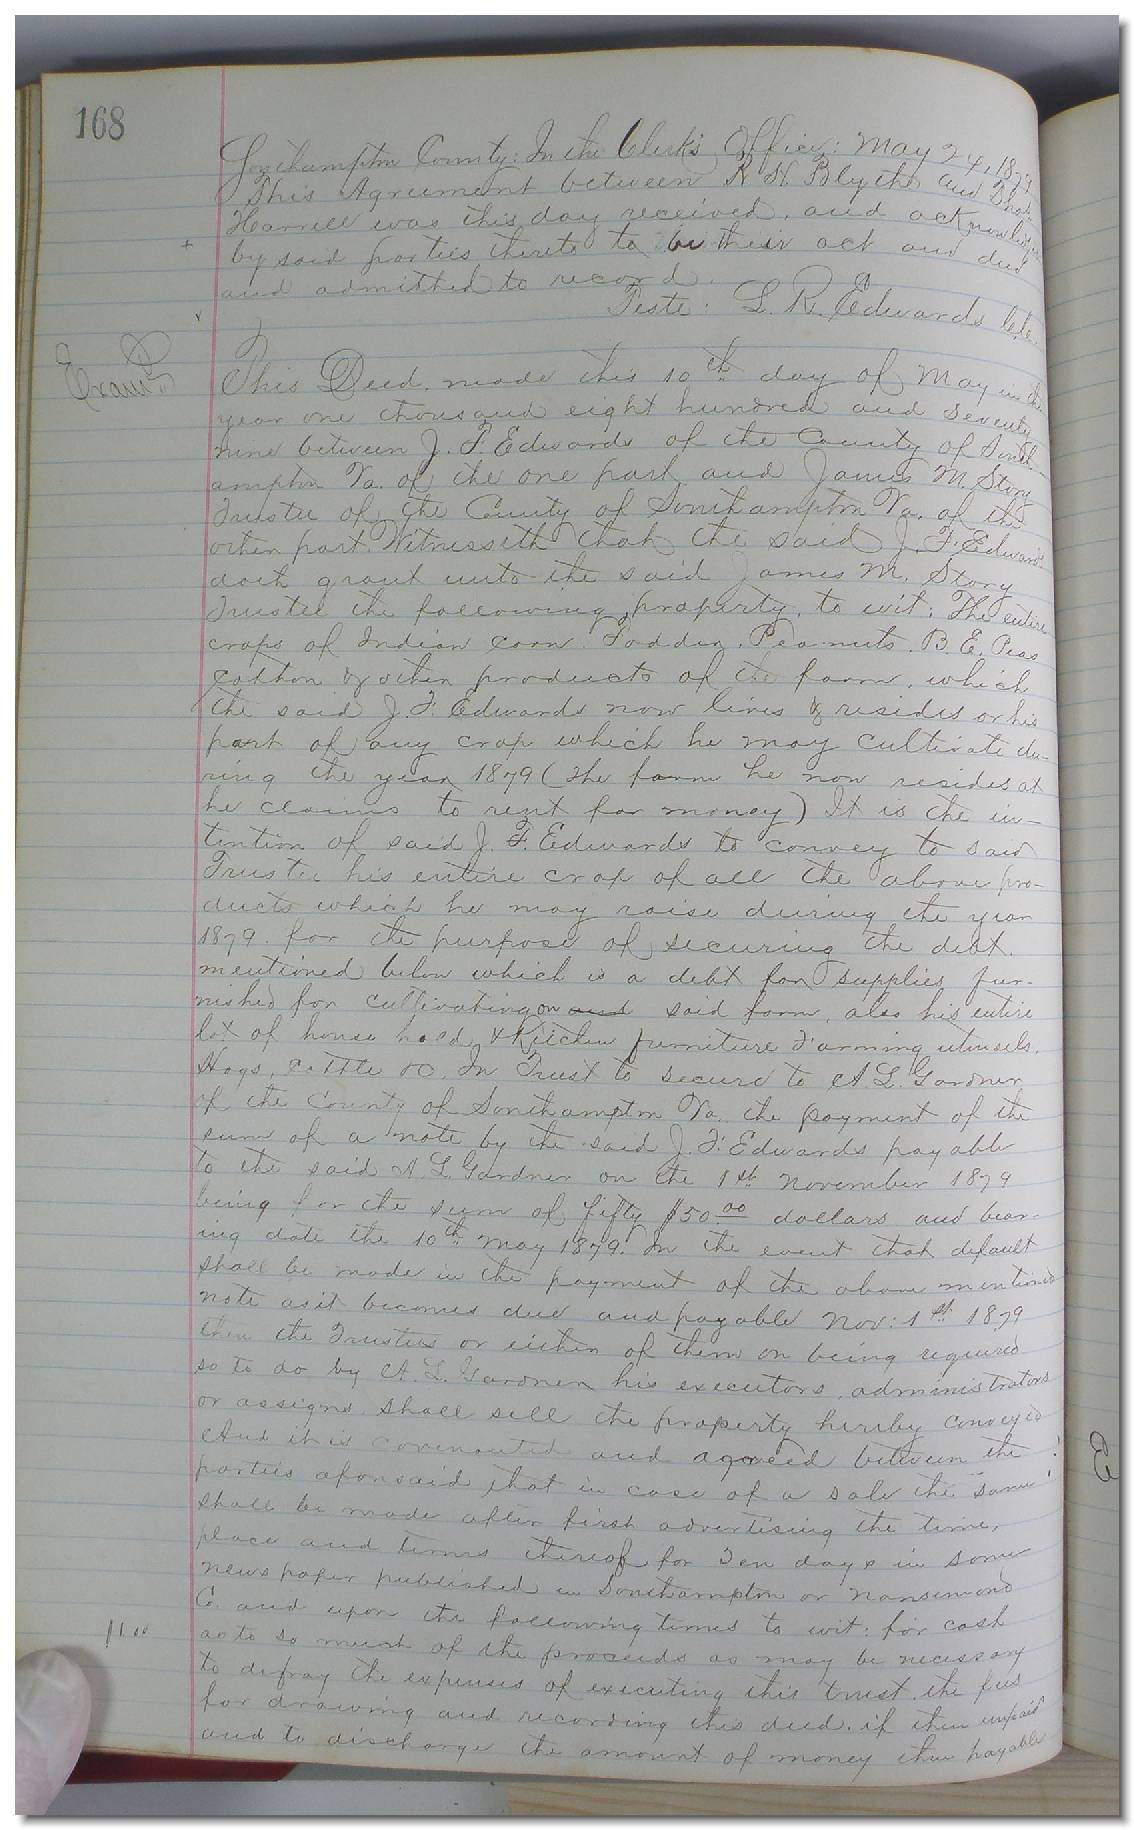 168
Southampton County: In the Clerk's Office: May 24, 1879
This Agreement between R H. Blythe and
Harrell was this day received, and acknowledged
by said parties thereto to be their act and deed
and admitted to record.
Teste: L. R. Edwards Clk.
Exam'd
This Deed, made this 10th day of May in the
year one thousand eight hundred and seventy
nine between J. F. Edwards of the County of South-
ampton Va. of the one part and James M Story
Trustee of the County of Southampton Va. of the
other part. Witnesseth that the said J. F. Edwards
doth grant unto the said James M. Story
Trustee the following property, to wit: The entire
crops of Indian corn. Fodder. Peanuts. B. E. Peas
cotton & other products of the farm, which
the said J. F. Edwards now lives & resides or his
part of any crop which he may cultivate du-
ring the year 1879 (the farm he now resides at
he claims to rent for money) It is the in-
tention of said J. F. Edwards to convey to said
Trustee his entire crop of all the above pro-
ducts which he may raise during the year
1879. for the purpose of securing the debt.
mentioned below which is a debt for supplies fur-
nished for cultivating on and said farm, also his entire
lot of house hold & Kitchen furniture Farming utensils.
Hogs, Cattle &C. In Trust to secure to A L. Gardner
of the County of Southampton Va. the payment of the
sum of a note by the said J. F. Edwards payable
to the said A. L. Gardner on the 1st November 1879
being for the sum of fifty $50.00 dollars and bear-
ing date the 10th May 1879. In the event that default
shall be made in the payment of the above mentioned
note as it becomes due and payable Nov: 1st 1879
then the Trustees or either of them on being required
so to do by A. L. Gardner his executors, administrators
or assigns shall sell the property hereby conveyed
And it is covenanted and agreed between the
parties aforesaid that in case of a sale the same
shall be made after first advertising the time,
place and terms thereof for Ten days in some
newspaper published in Southampton or Nansemond
C. and upon the following times to wit: for cash
as to so much of the proceeds as may be necessary
to defray the expenses of executing this trust the fees
for drawing and recording this deed. if then unpaid
and to discharge the amount of money then payable